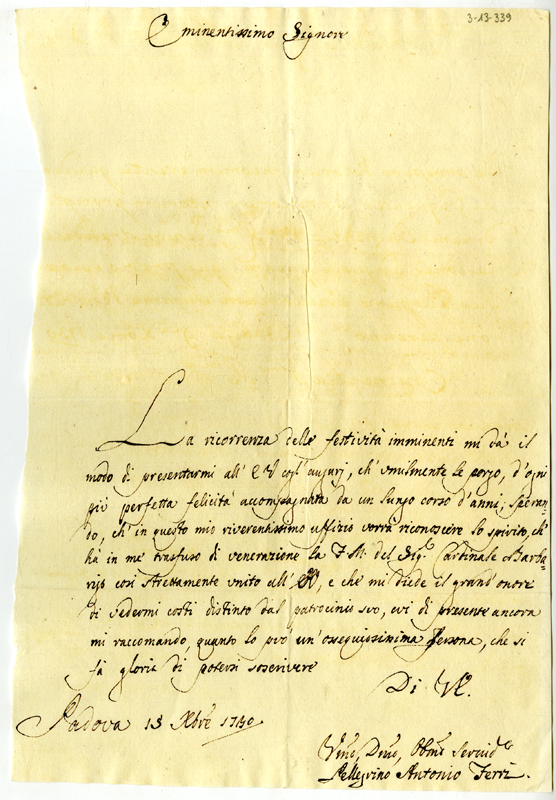 3-13-339
Eminentissimo Signore
La ricorrenza delle festività imminenti mi dà il
modo di presentarmi all' EV cogl' augurj, ch' umilmente le porgo, d'ogni
più perfetta felicità accompagnata da un lungo corso d'anni; speran=
do, ch' in questo mio riverentissimo uffizio vorrà riconoscere lo spirito, ch'
hà in me trasfuso di venerazione la F. M. del Sigr. Cardinale Barba=
rigo così strettamente unito all' EV, e che mi diede il grand' onore
di vedermi costì distinto dal patrocinio suo, cui di presente ancora
mi raccomando, quanto lo può un' ossequiosissima Persona, che si
fà gloria di potersi soscrivere
Di VE.
Padova 13 Xbre 1740
Umo, Devo, Obmo Servide
Pellegrino Antonio Ferri